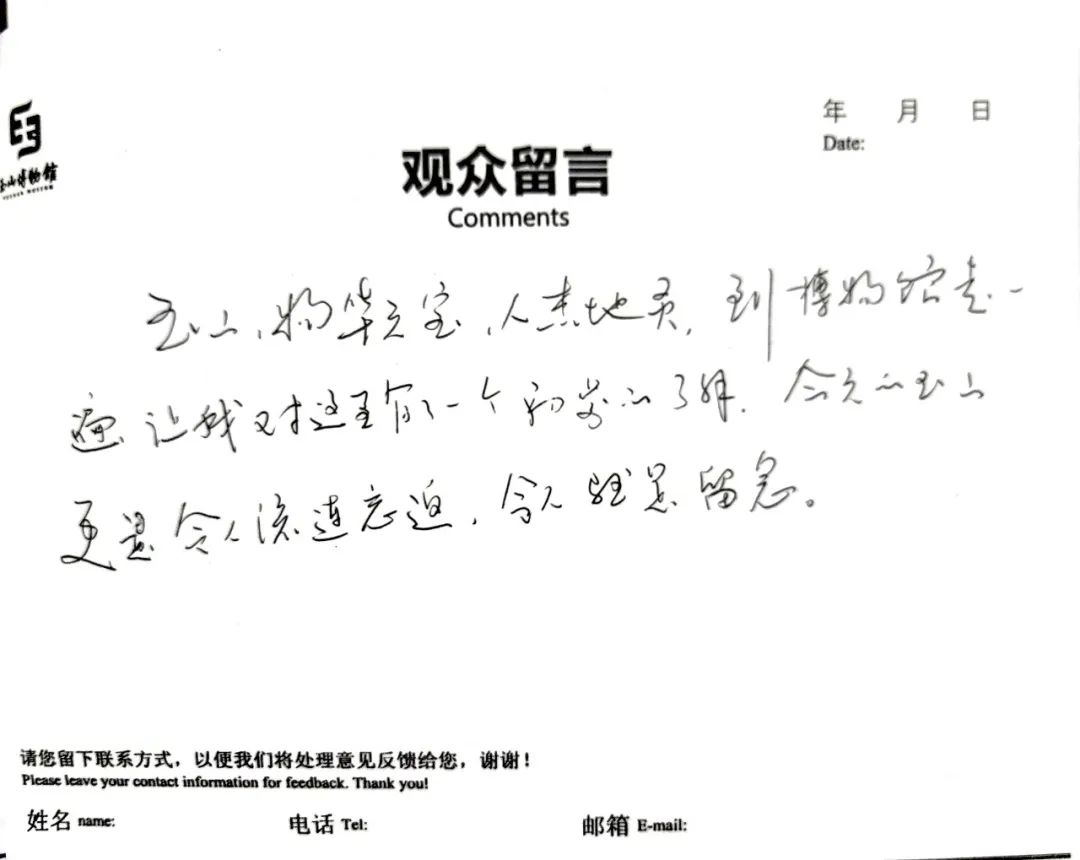 年 月 日
Date:
玉山博物馆
YUSHAN MUSEUM
观众留言
Comments
玉山,物华天宝,人杰地灵,到博物馆走一
遍让我对这里有了一个初步的了解.今天的玉山
更是令人流连忘返,令人驻足留念。
请您留下联系方式，以便我们将处理意见反馈给您，谢谢！
Please leave your contact information for feedback. Thank you!
姓名 name: 电话 Tel: 邮箱 E-mail: